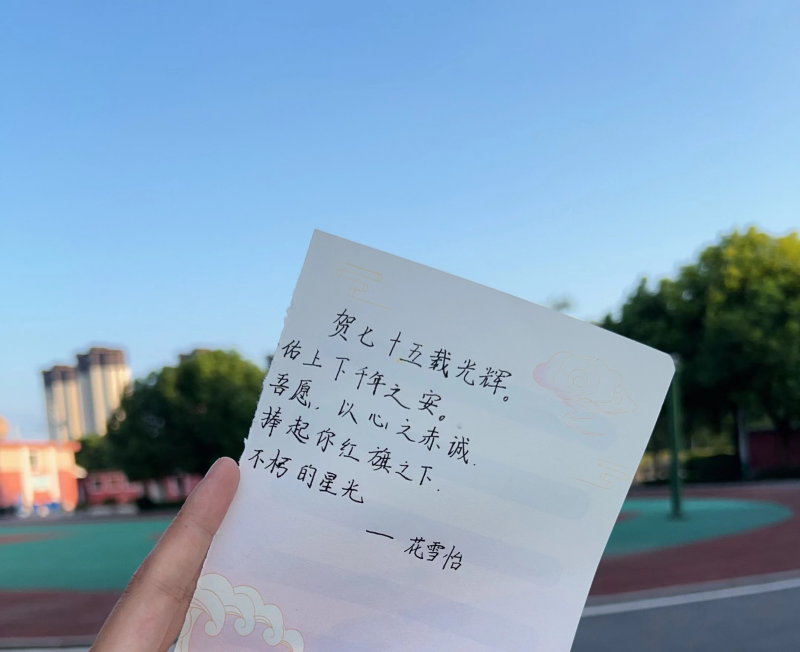 贺七十五载光辉。
佑上下千年之安。
吾愿，以心之赤诚.
捧起你红旗之下.
不朽的星光
— 花雪怡